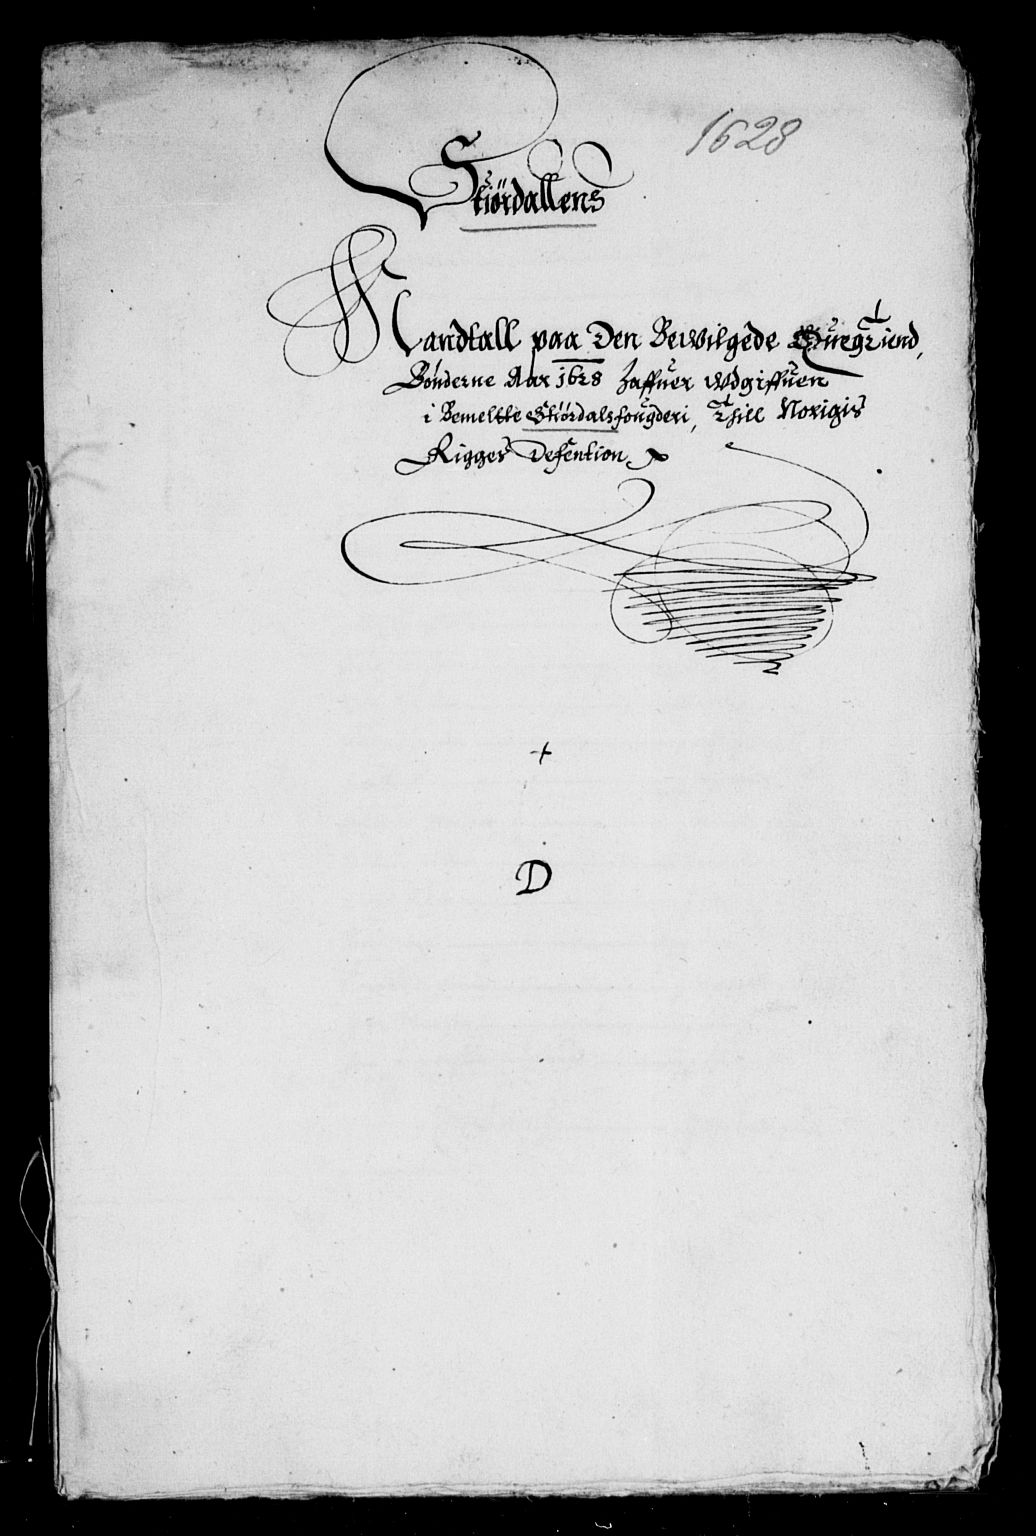 1628
Stiørdallens
Mandtall paa den Bewilgede
Bønderne Aar 1628 haffuer wdgiffuen
i Bemelte Stiørdals fougderi, Till Norigis
Rigges Defention
+
D